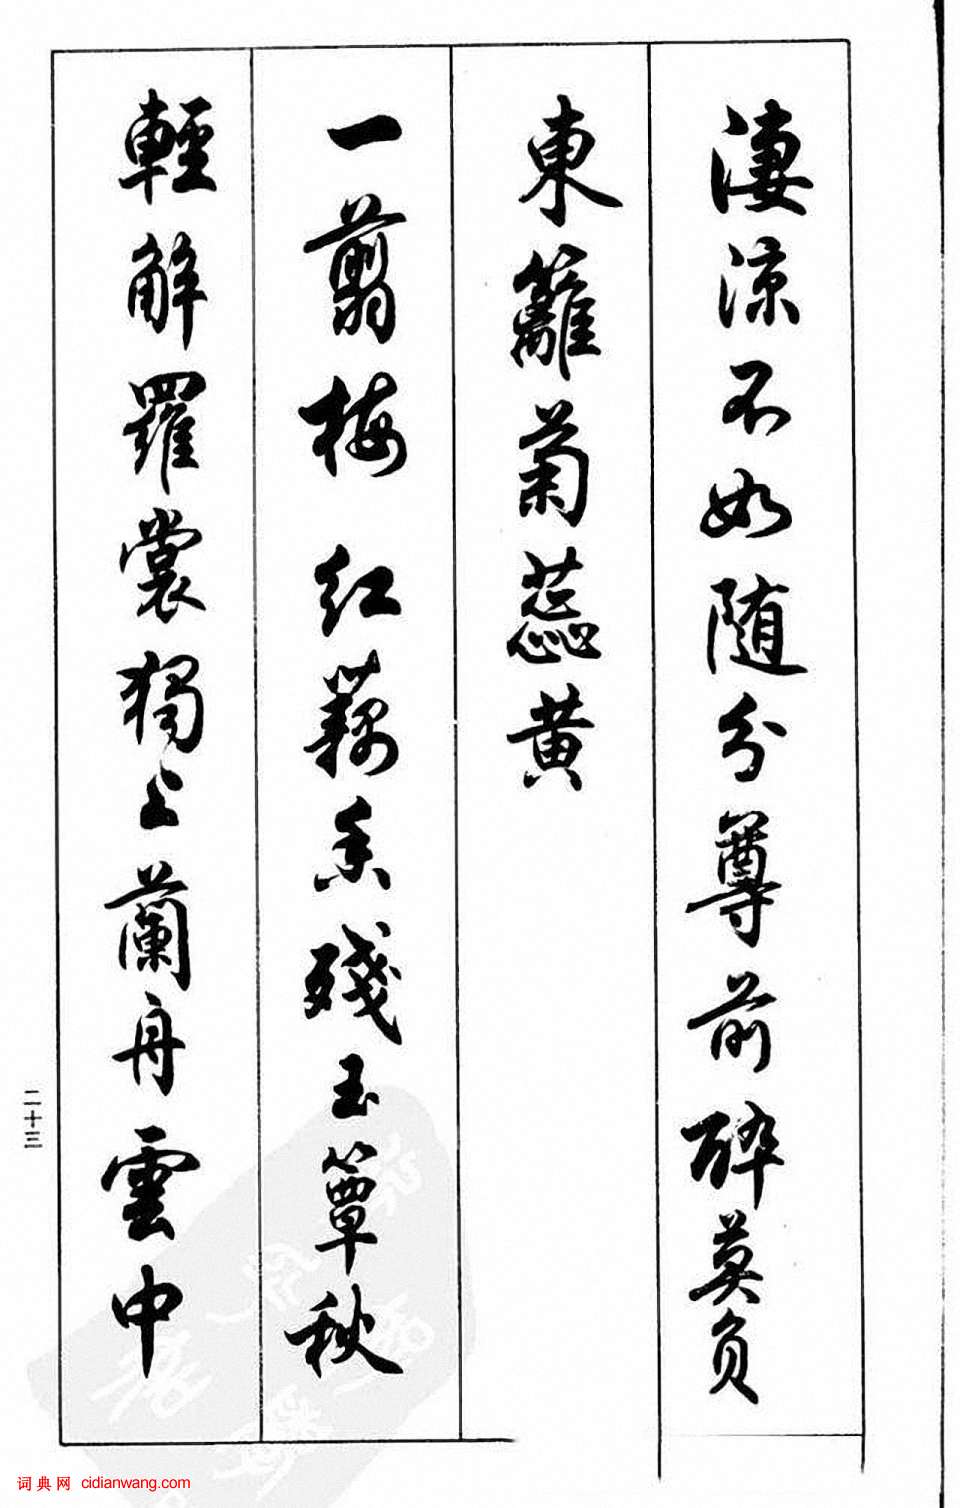 淒涼不如随分尊前醉莫负
東籬菊蕊黄
一翦梅 红藕香殘玉簟秋
輕解羅裳獨上蘭舟雲中
二十三
词典网 cidianwang.com